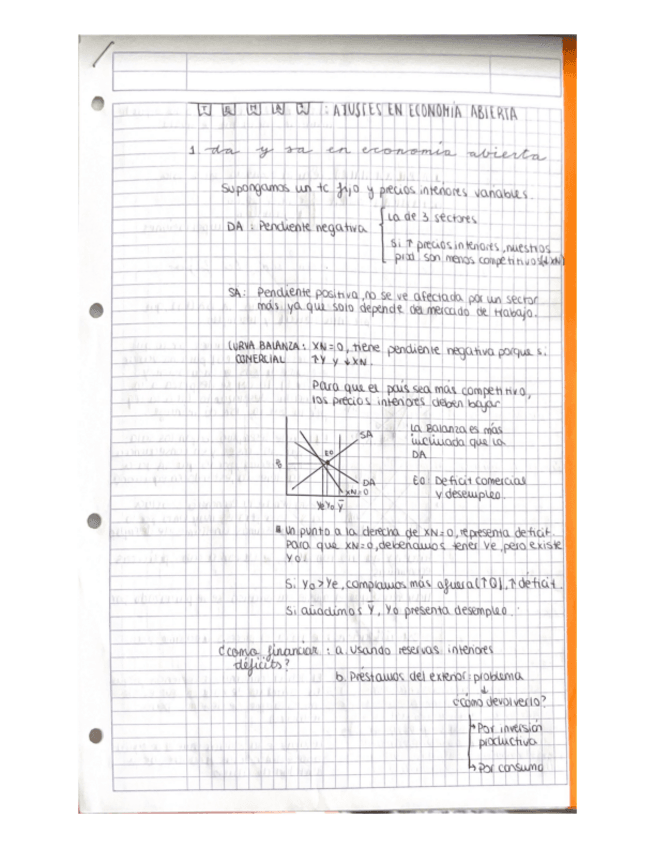 TEMA : AJUSTES EN ECONOMÍA ABIERTA
1. da y sa en economía abierta
Supongamos un tc fijo y precios interiores variables.
DA : Pendiente negativa
La de 3 sectores
Si ↑ precios interiores, nuestros
prod. son menos competitivos (↓XN)
SA: Pendiente positiva, no se ve afectada por un sector
más ya que solo depende del mercado de trabajo.
CURVA BALANZA : XN=0, tiene pendiente negativa porque si
COMERCIAL ↑Y y ↓XN.
Para que el país sea más competitivo,
los precios interiores deben bajar
SA
E0
DA
XN=0
Ye Y0 Ȳ
La Balanza es más
inclinada que la
DA
E0: Deficit comercial
y desempleo.
Un punto a la derecha de XN=0, representa deficit.
Para que XN=0, deberíamos tener Ye, pero existe
Y0
Si Y0>Ye, compramos más afuera (↑Q), ↑ déficit.
Si añadimos Ȳ, Y0 presenta desempleo.
¿como financiar : a. Usando reservas interiores
déficits?
b. Préstamos del exterior: problema
¿cómo devolverlo?
Por inversión
productiva
Por consumo